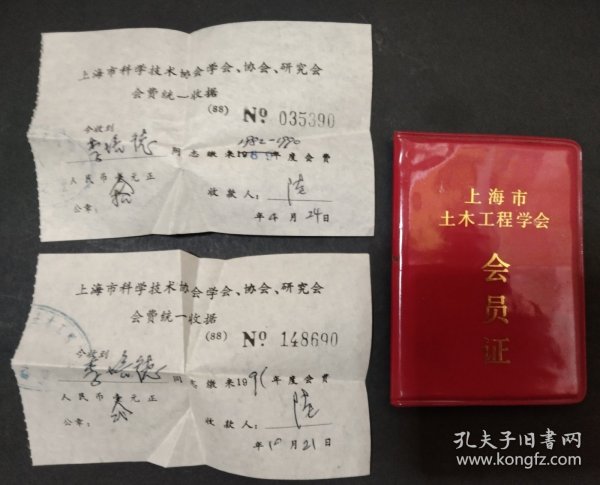 上海市科学技术协会学会、协会、研究会
会费统一收据
(88) № 035390
今收到
1982-1990
同志缴来19 年度会费
人民币壹元正
公章： 收款人：陆
年4月24日
上海市科学技术协会学会、协会、研究会
会费统一收据
(88) № 148690
今收到
同志缴来1991年度会费
人民币壹元正
公章： 收款人：陆
年10月21日
上海市
土木工程学会
会员证
孔夫子旧书网
www.kongfz.com